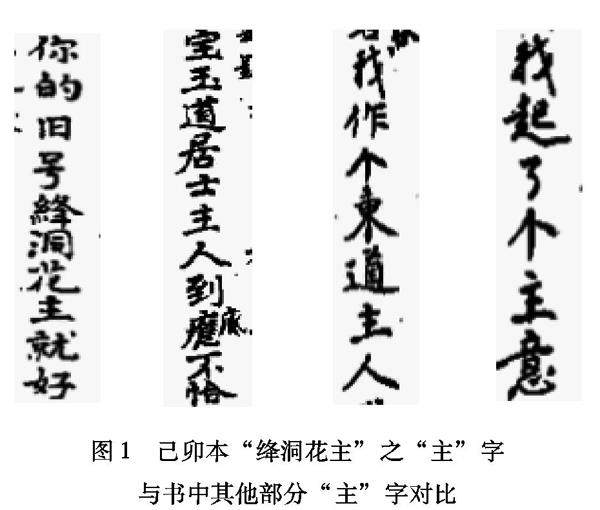 你的旧号絳洞花主就好
宝玉道居士主人到底不恰
我作个東道主人
我起了个主意
图1 己卯本“绛洞花主”之“主”字
与书中其他部分“主”字对比